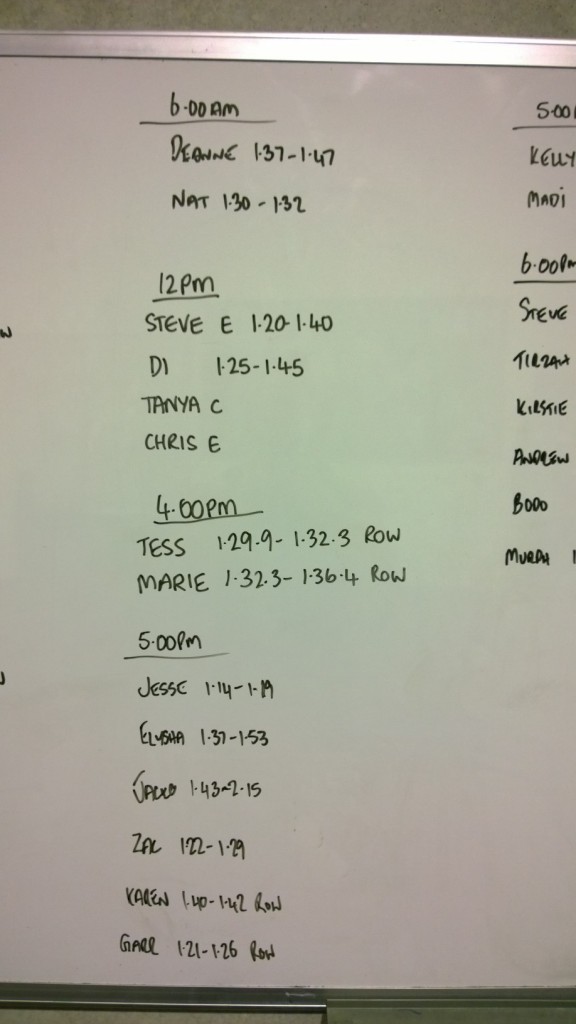 6.00AM
DEANNE 1.37-1.47
NAT 1.30-1.32
12PM
STEVE E 1.20-1.40
DI 1.25-1.45
TANYA C
CHRIS E
4.00PM
TESS 1.29.9-1.32.3 ROW
MARIE 1.32.3-1.36.4 ROW
5.00PM
JESSE 1.14-1.19
1.37-1.53
1.43-2.15
ZAC 1.22-1.29
KAREN 1.40-1.42 ROW
GARR 1.21-1.26 ROW
5.00
KELLY
MADI
6.00PM
STEVE
TIRZAH
KIRSTIE
ANDREW
BODO
MURPH